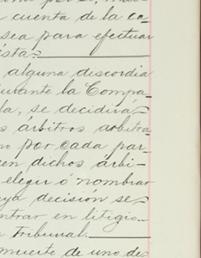 cuenta de la co
sea para efectuar
ista.
alguna discordia
durante la Compa
la, se decidirá
s árbitros arbitra
o por cada par
en dichos árbi-
elegir ó nombrar
ya decisión se
ntrar en litigio
Tribunal.
muerte de uno de